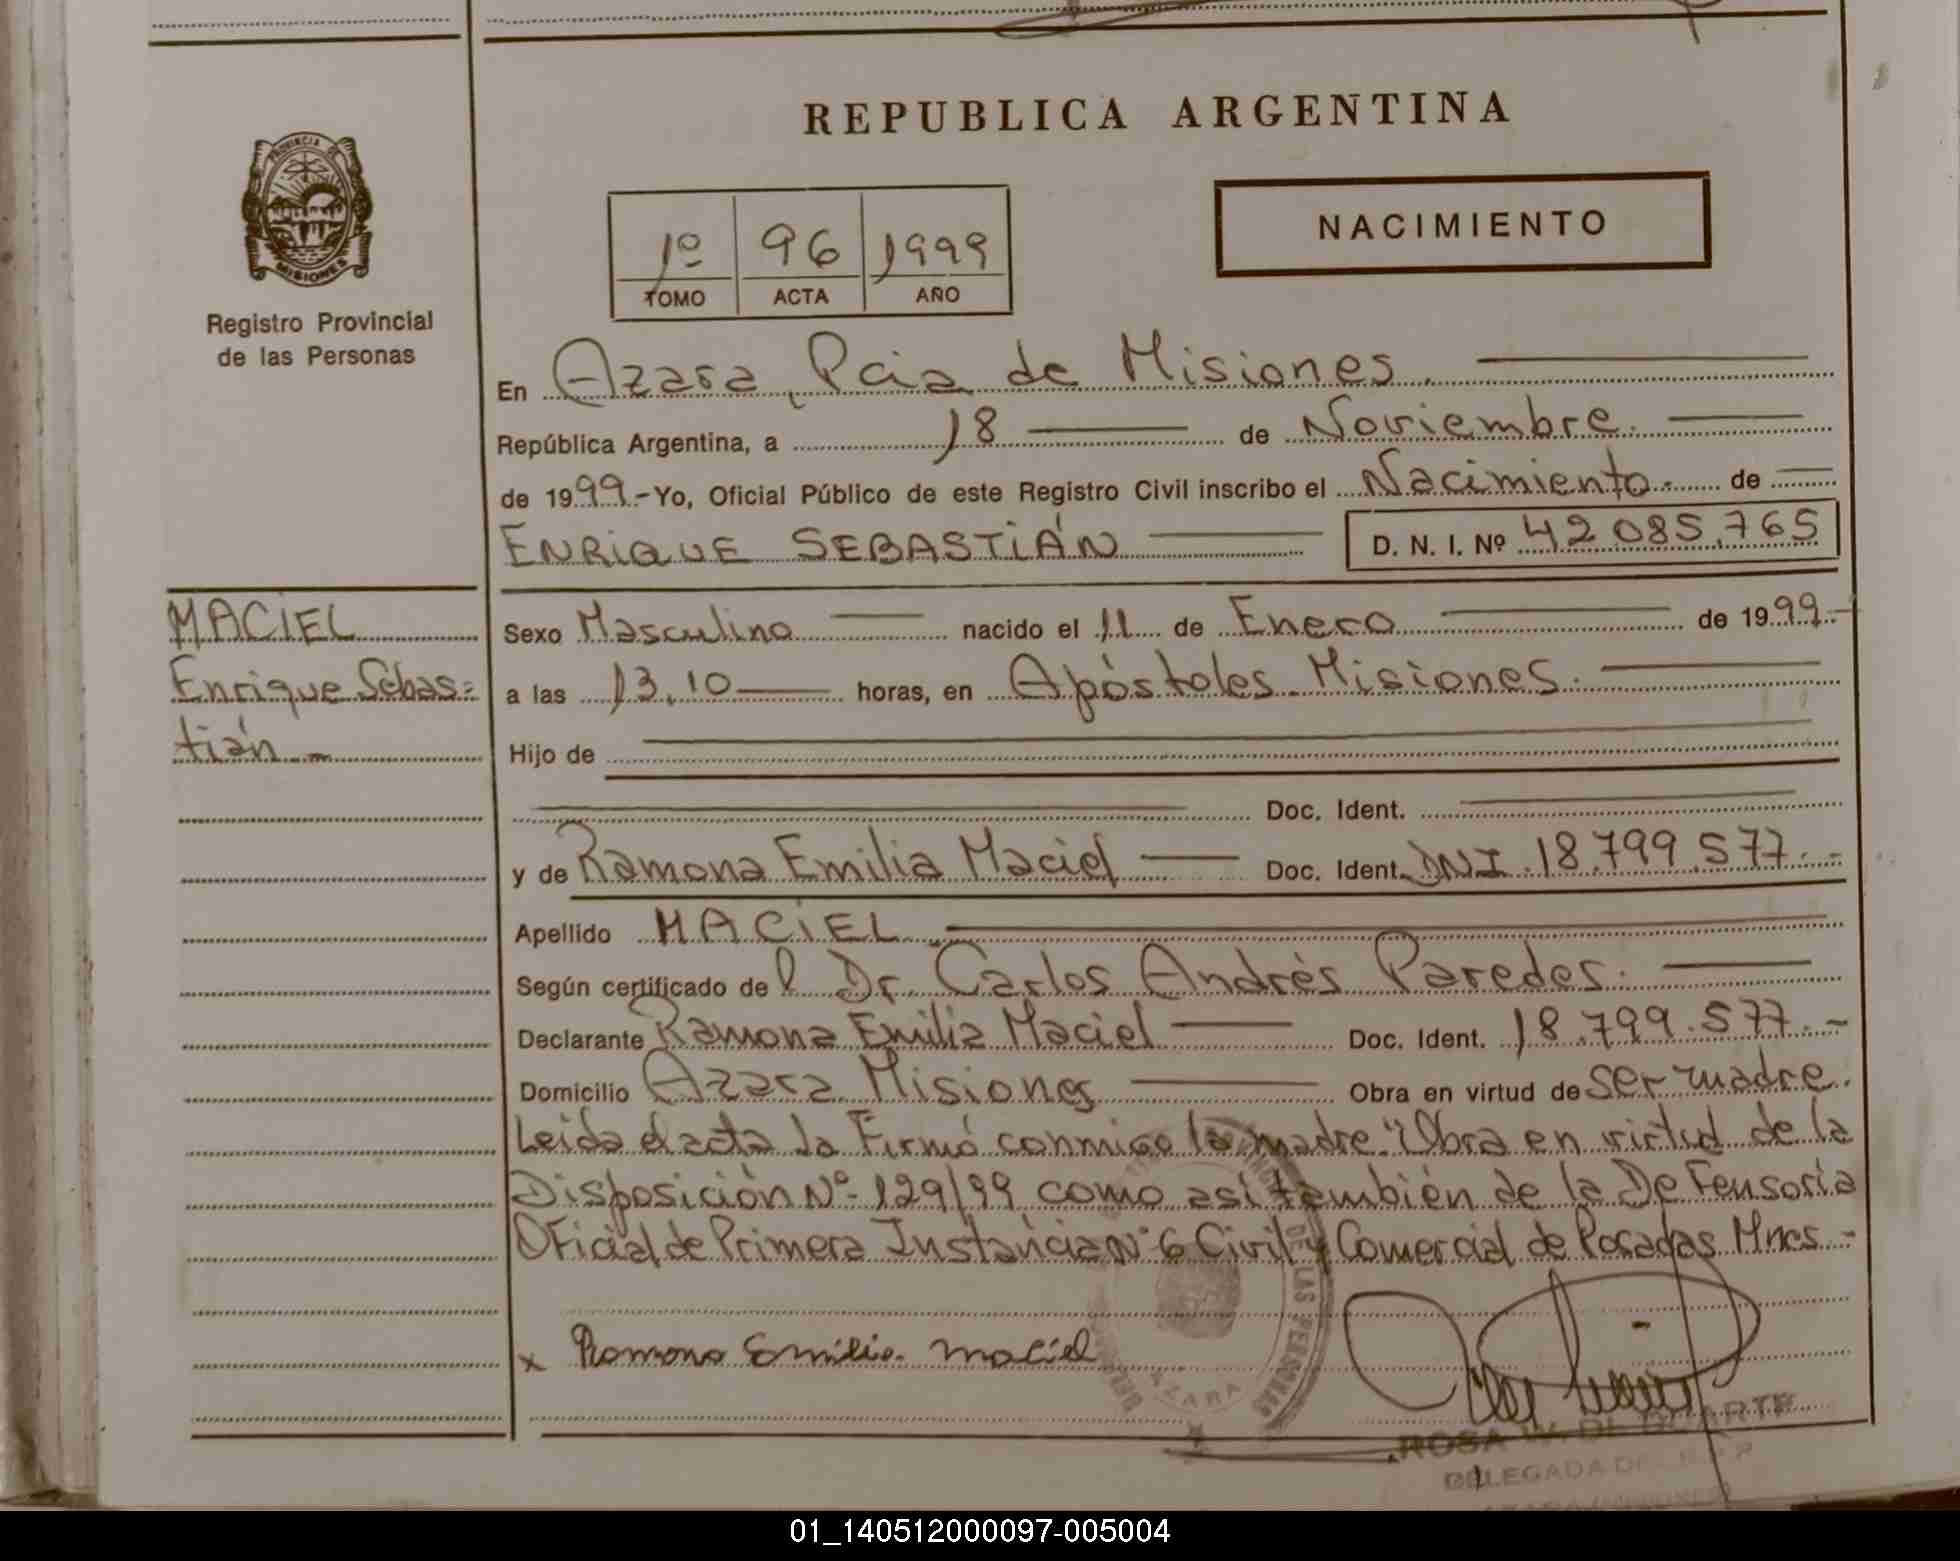 REPUBLICA ARGENTINA
PROVINCIA DE
MISIONES
Registro Provincial
de las Personas
1º 96 1999
TOMO ACTA AÑO
NACIMIENTO
En Azara, Pcia de Misiones.
República Argentina, a 18 de Noviembre.
de 1999.- Yo, Oficial Público de este Registro Civil inscribo el Nacimiento. de
ENRIQUE SEBASTIÁN D. N. I. Nº 42 085.765
MACIEL
Enrique Sebas=
tián -
Sexo Masculino nacido el 11 de Enero de 1999.-
a las 13,10 horas, en Apóstoles Misiones.
Hijo de
Doc. Ident.
y de Ramona Emilia Maciel Doc. Ident. DNI 18.799.577.-
Apellido MACIEL
Según certificado del Dr. Carlos Andrés Paredes.
Declarante Ramona Emilia Maciel Doc. Ident. 18.799.577.-
Domicilio Azara Misiones Obra en virtud de ser madre.
Leida el acta la Firmó conmigo la madre. "Obra en virtud de la
Disposición Nº 129/99 como asi también de la DeFensoría
OFicial de Primera Instancia Nº 6 Civil y Comercial de Posadas Mnes.-
x Ramona Emilia Maciel
DE LAS PERSONAS
AZARA
ROSA W. DE DUARTE
DELEGADA DEL R.P.P
01_140512000097-005004